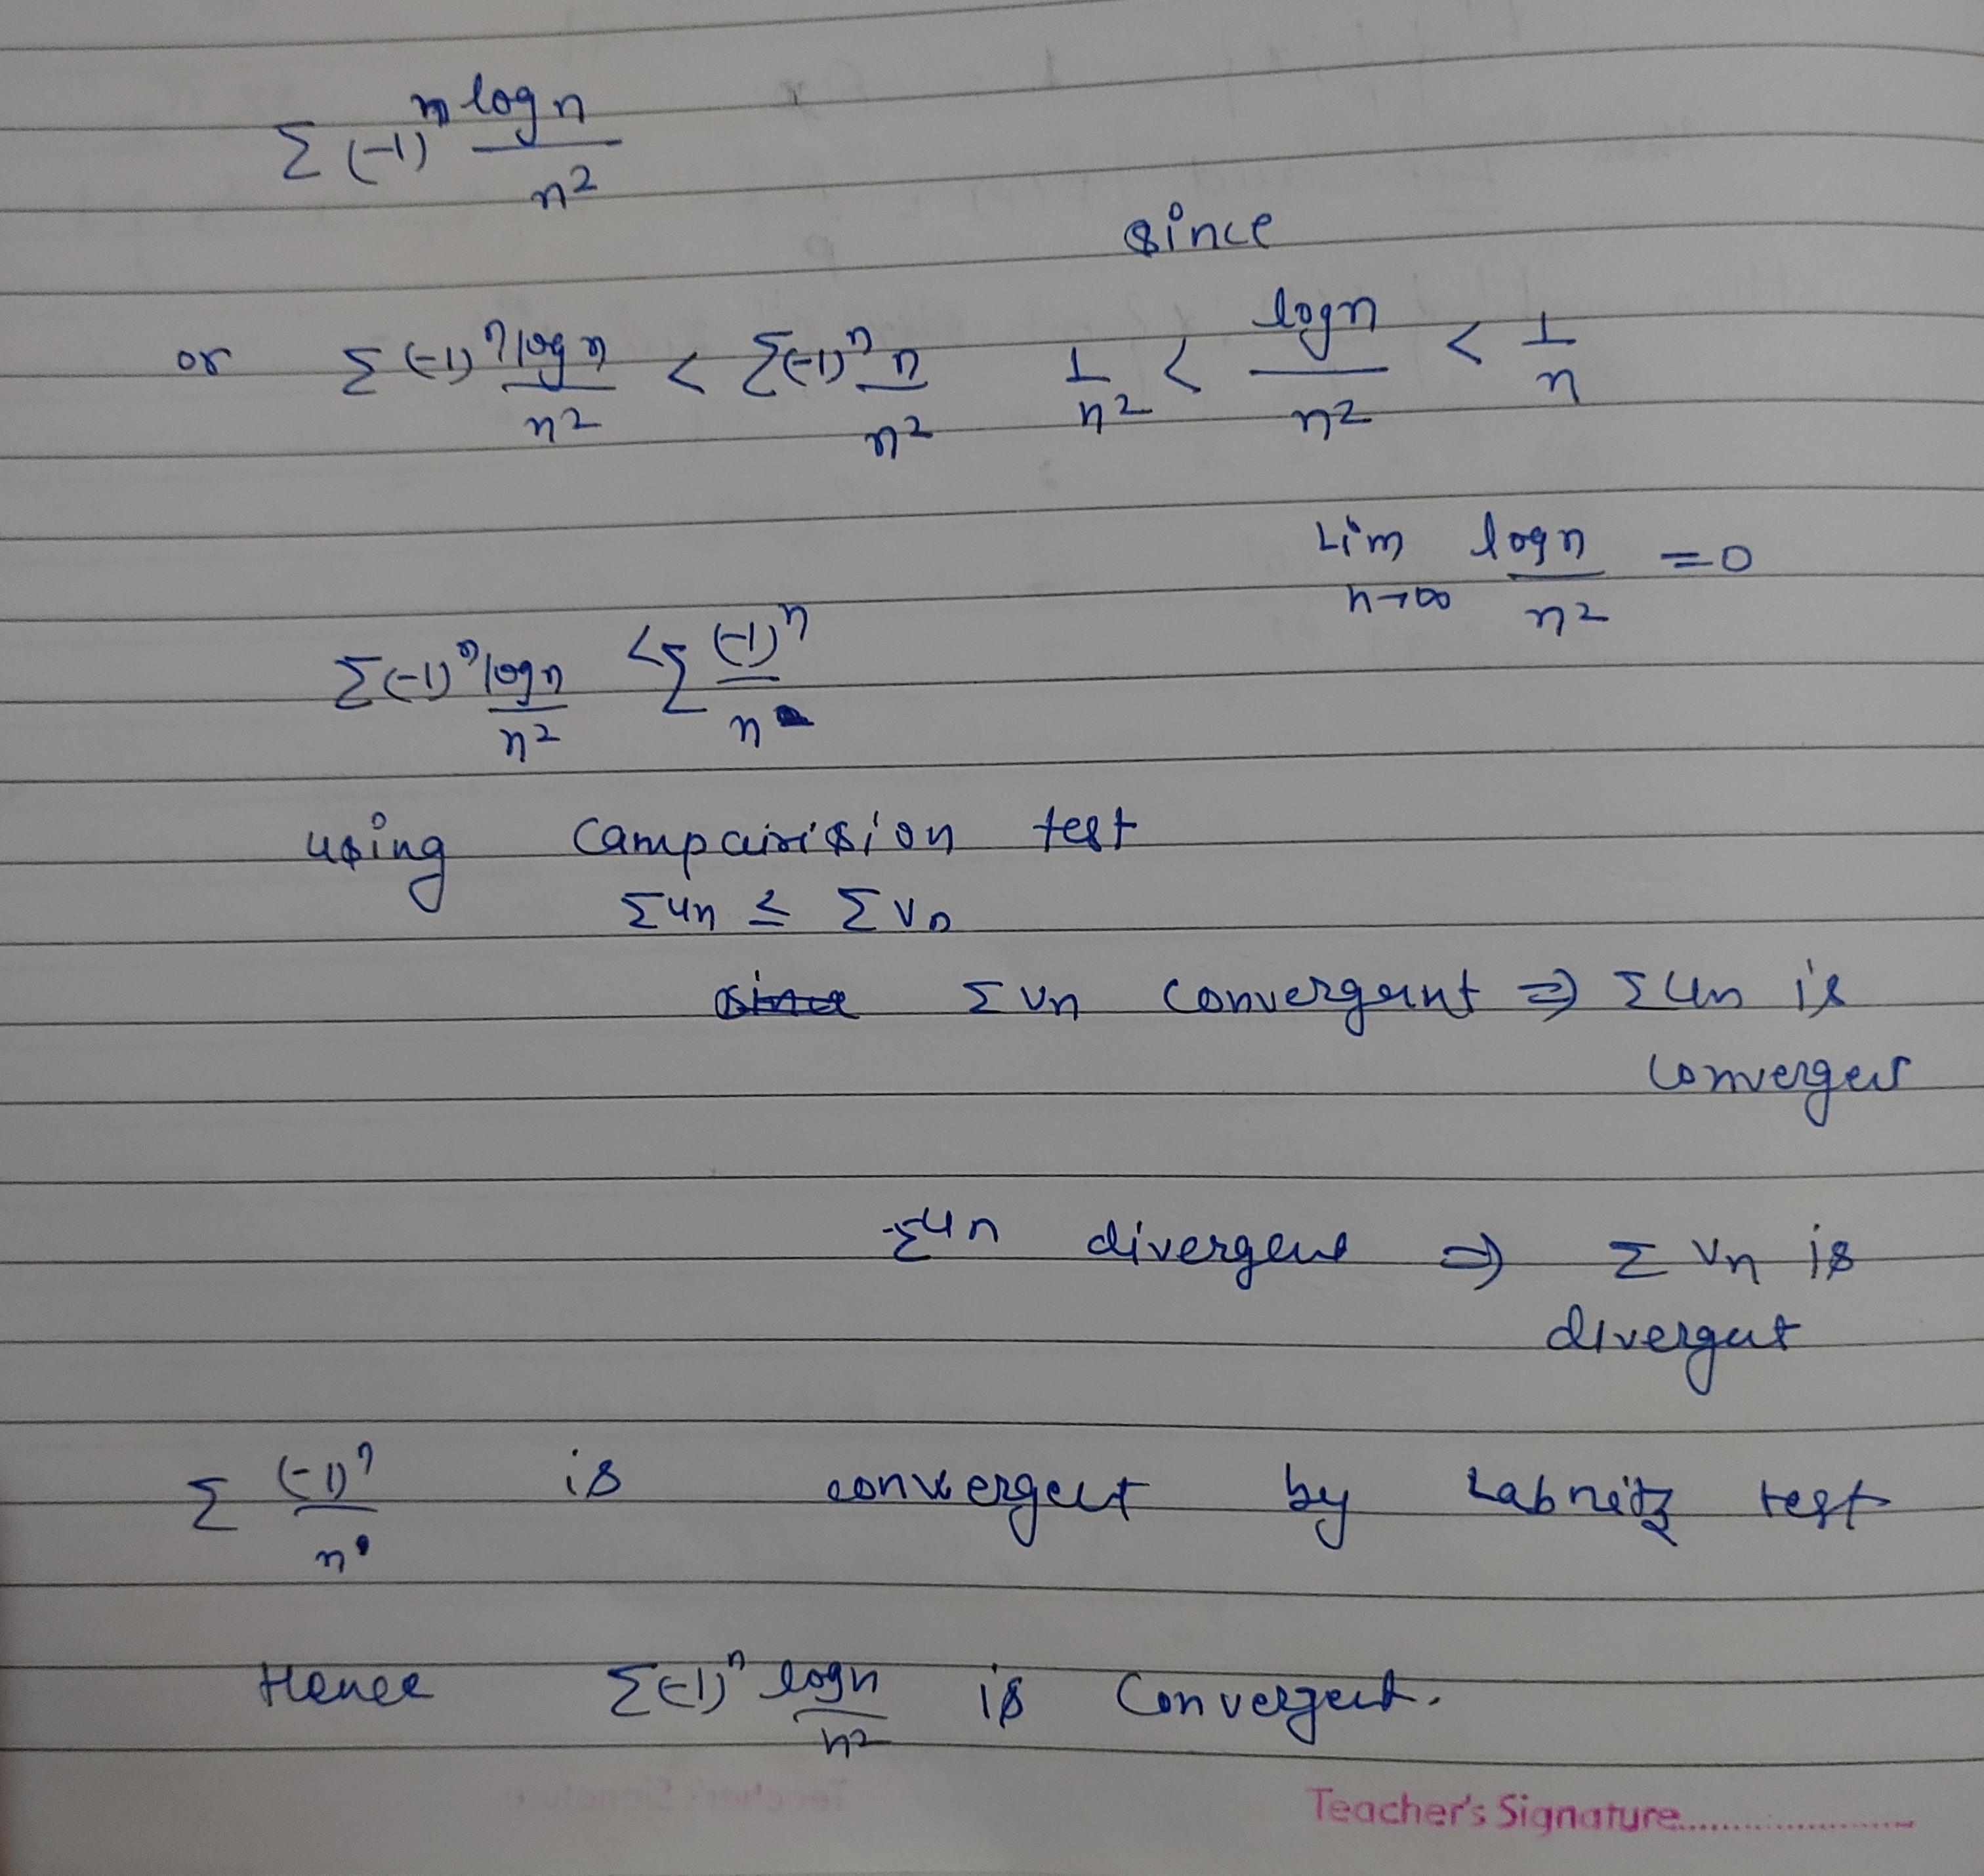 Σ (-1)^n log n / n^2
since
or Σ (-1)^n log n / n^2 < Σ(-1)^n n / n^2   1 / n^2 < log n / n^2 < 1 / n
Lim n→∞ log n / n^2 = 0
Σ(-1)^n log n / n^2 < Σ (-1)^n / n
using Campairision test
Σun ≤ Σvn
since Σvn convergent ⇒ Σun is
converges
Σun divergent ⇒ Σvn is
divergent
Σ (-1)^n / n is convergent by Labneitz test
Hence Σ(-1)^n log n / n^2 is Convergent.
Teacher's Signature....................